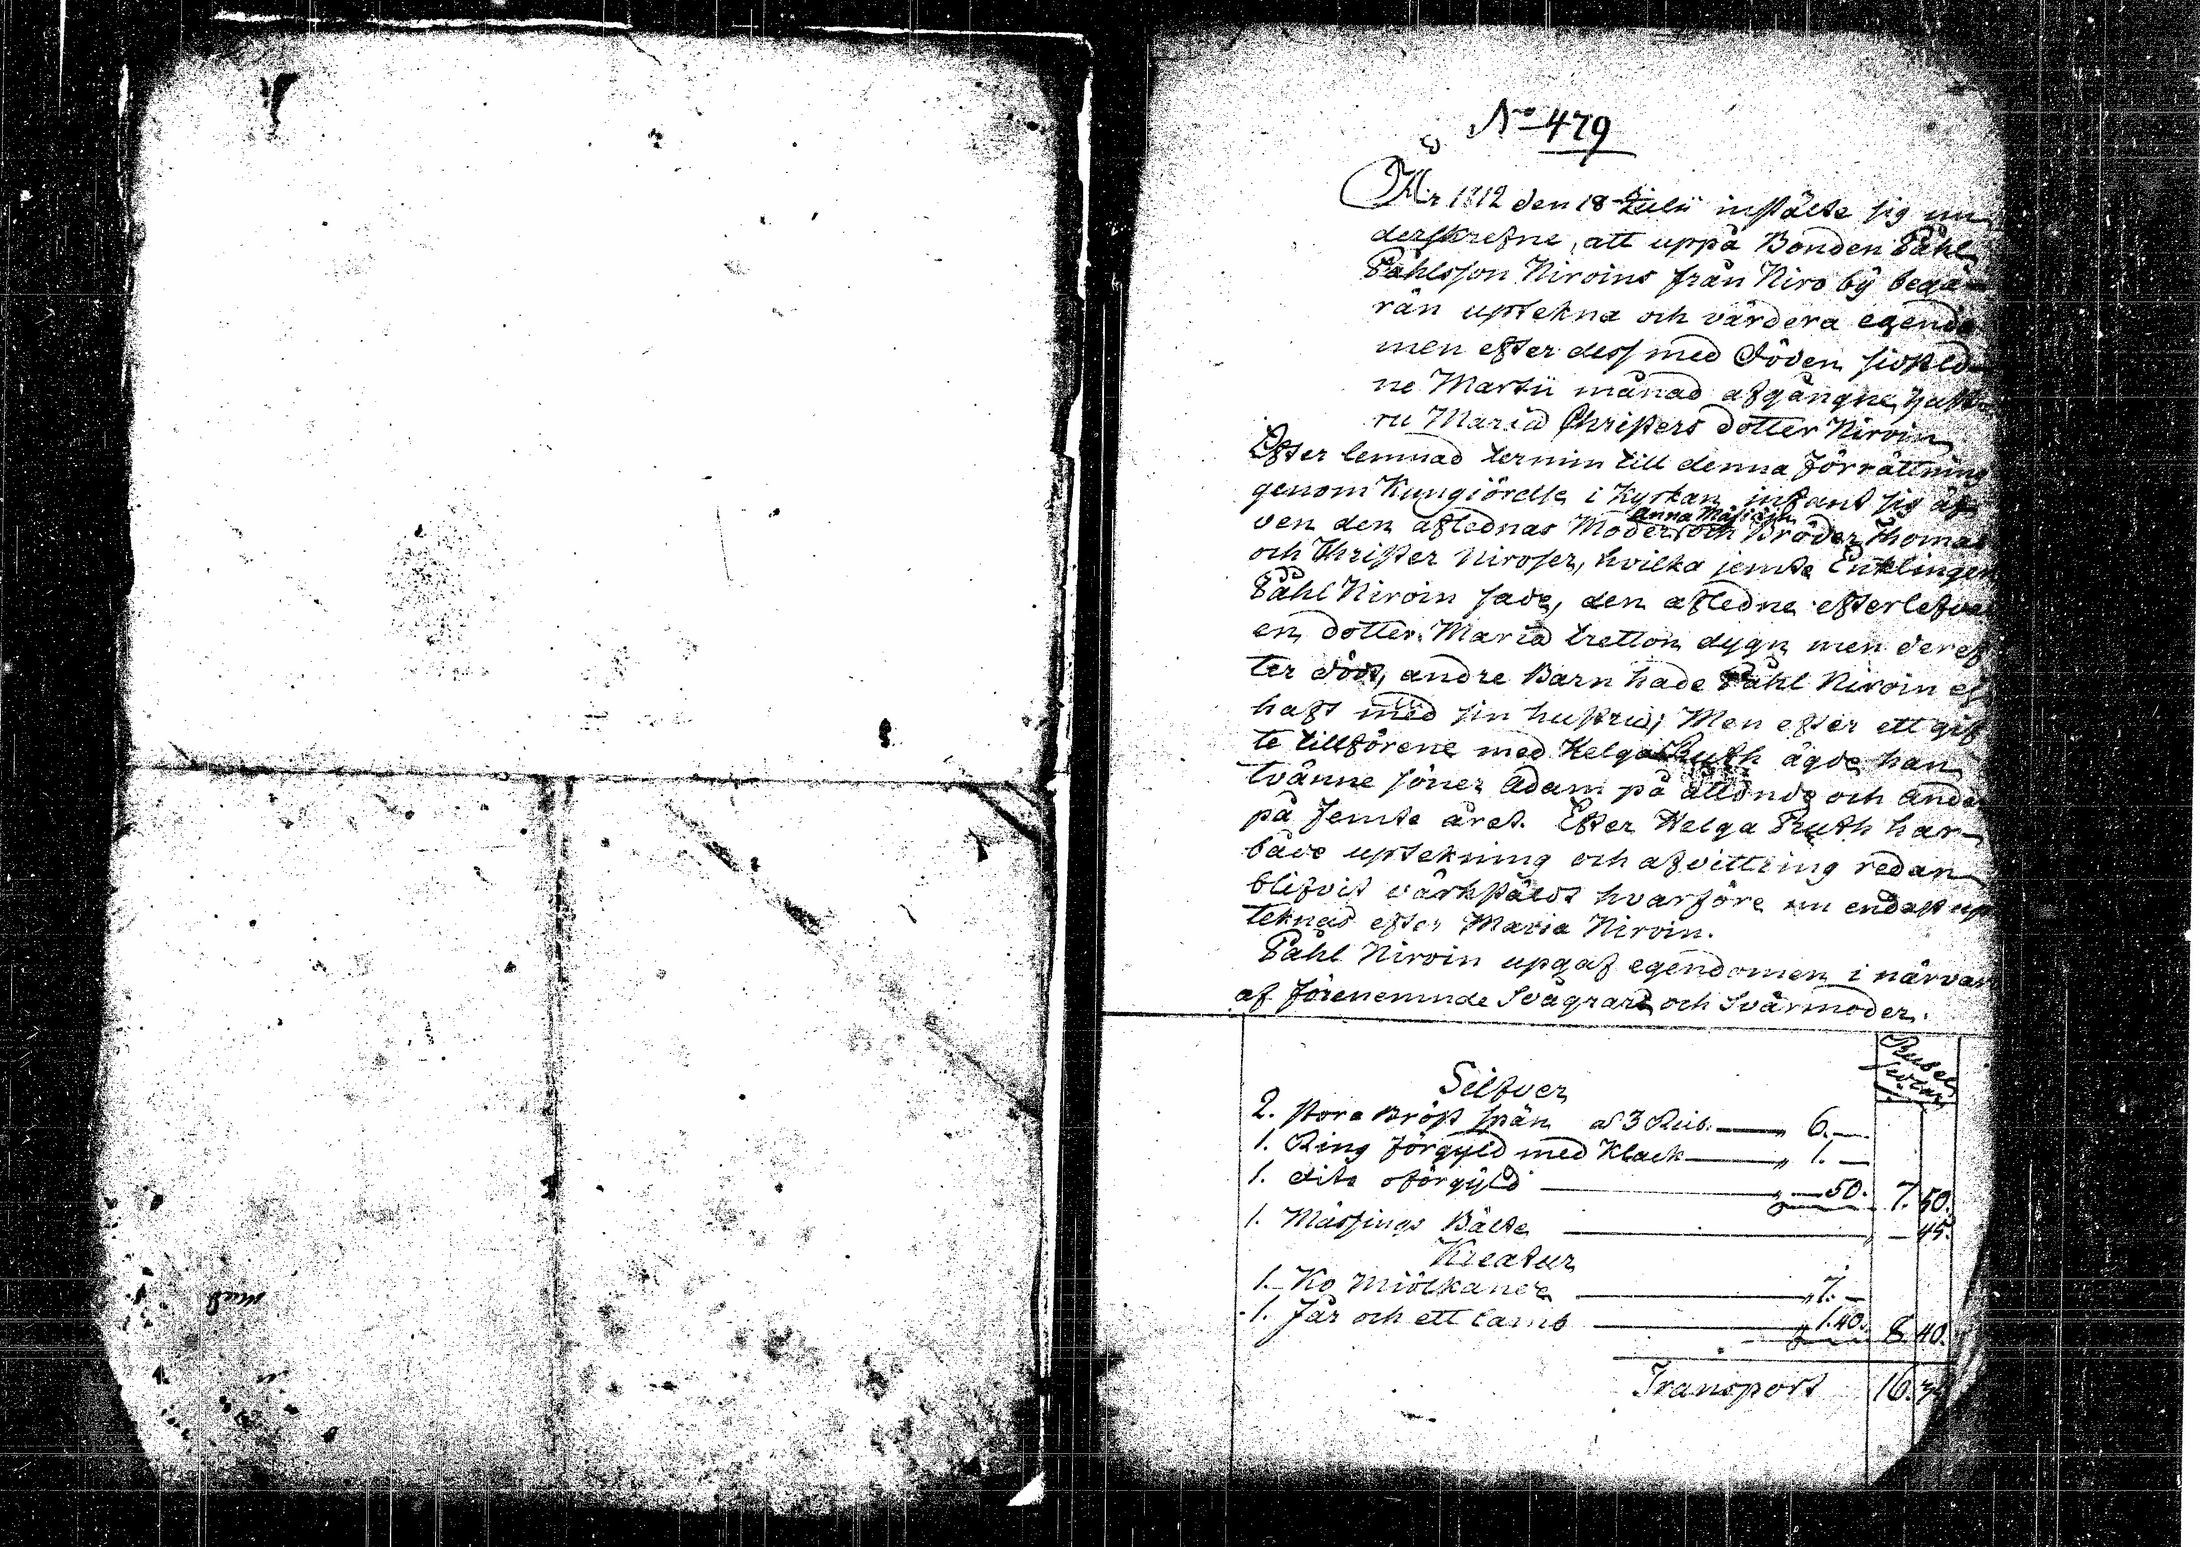 No 479
År 1812 den 18 Julii instälte sig un
derskrefne, att uppå Bonden Påhl
Påhlsson Niroins från Niro by begä-
ran uptekna och värdera egendo
men efter dess med Döden sistled-
ne Martii månad afgångne hust
ru Maria Christers dotter Niroin
Efter lemnad termin till denna förrättning
genom Kungiörelse i Kyrkan, infant sig äf
anna
ven den aflednas Moder och Bröder Thomas
och Christer Niroser, hvilka jemte Enklingen
Påhl Niroin sade, den afledne efterlefva
en dotter Maria tretton dygn men deref
ter död, andre Barn hade Påhl Niroin ej
haft med sin hustru; Men efter ett gif
te tillförene med Helga Ruth ägde han
tvänne söner Adam på åttonde och Anders
på femte året. Efter Helga Ruth har
både uptekning och afvittring redan
blifvit värkstäldt hvarföre nu endast up
teknas efter Maria Niroin.
Påhl Niroin upgaf egendomen i närvar
af förenemnde Svågrar och Svärmoder.
Rubel
Silfver
2. stora Bröst spän a 3 Rub. 6. —
1. Ring förgyld med Klack " 1. —
1. dito oförgyld — 50. 7. 50.
1. Mässings Bälte — 45.
Kreatur
1. Ko Miölkande " 7. —
1. Får och ett lamb " 1.40. 8. 40.
Transport 16.